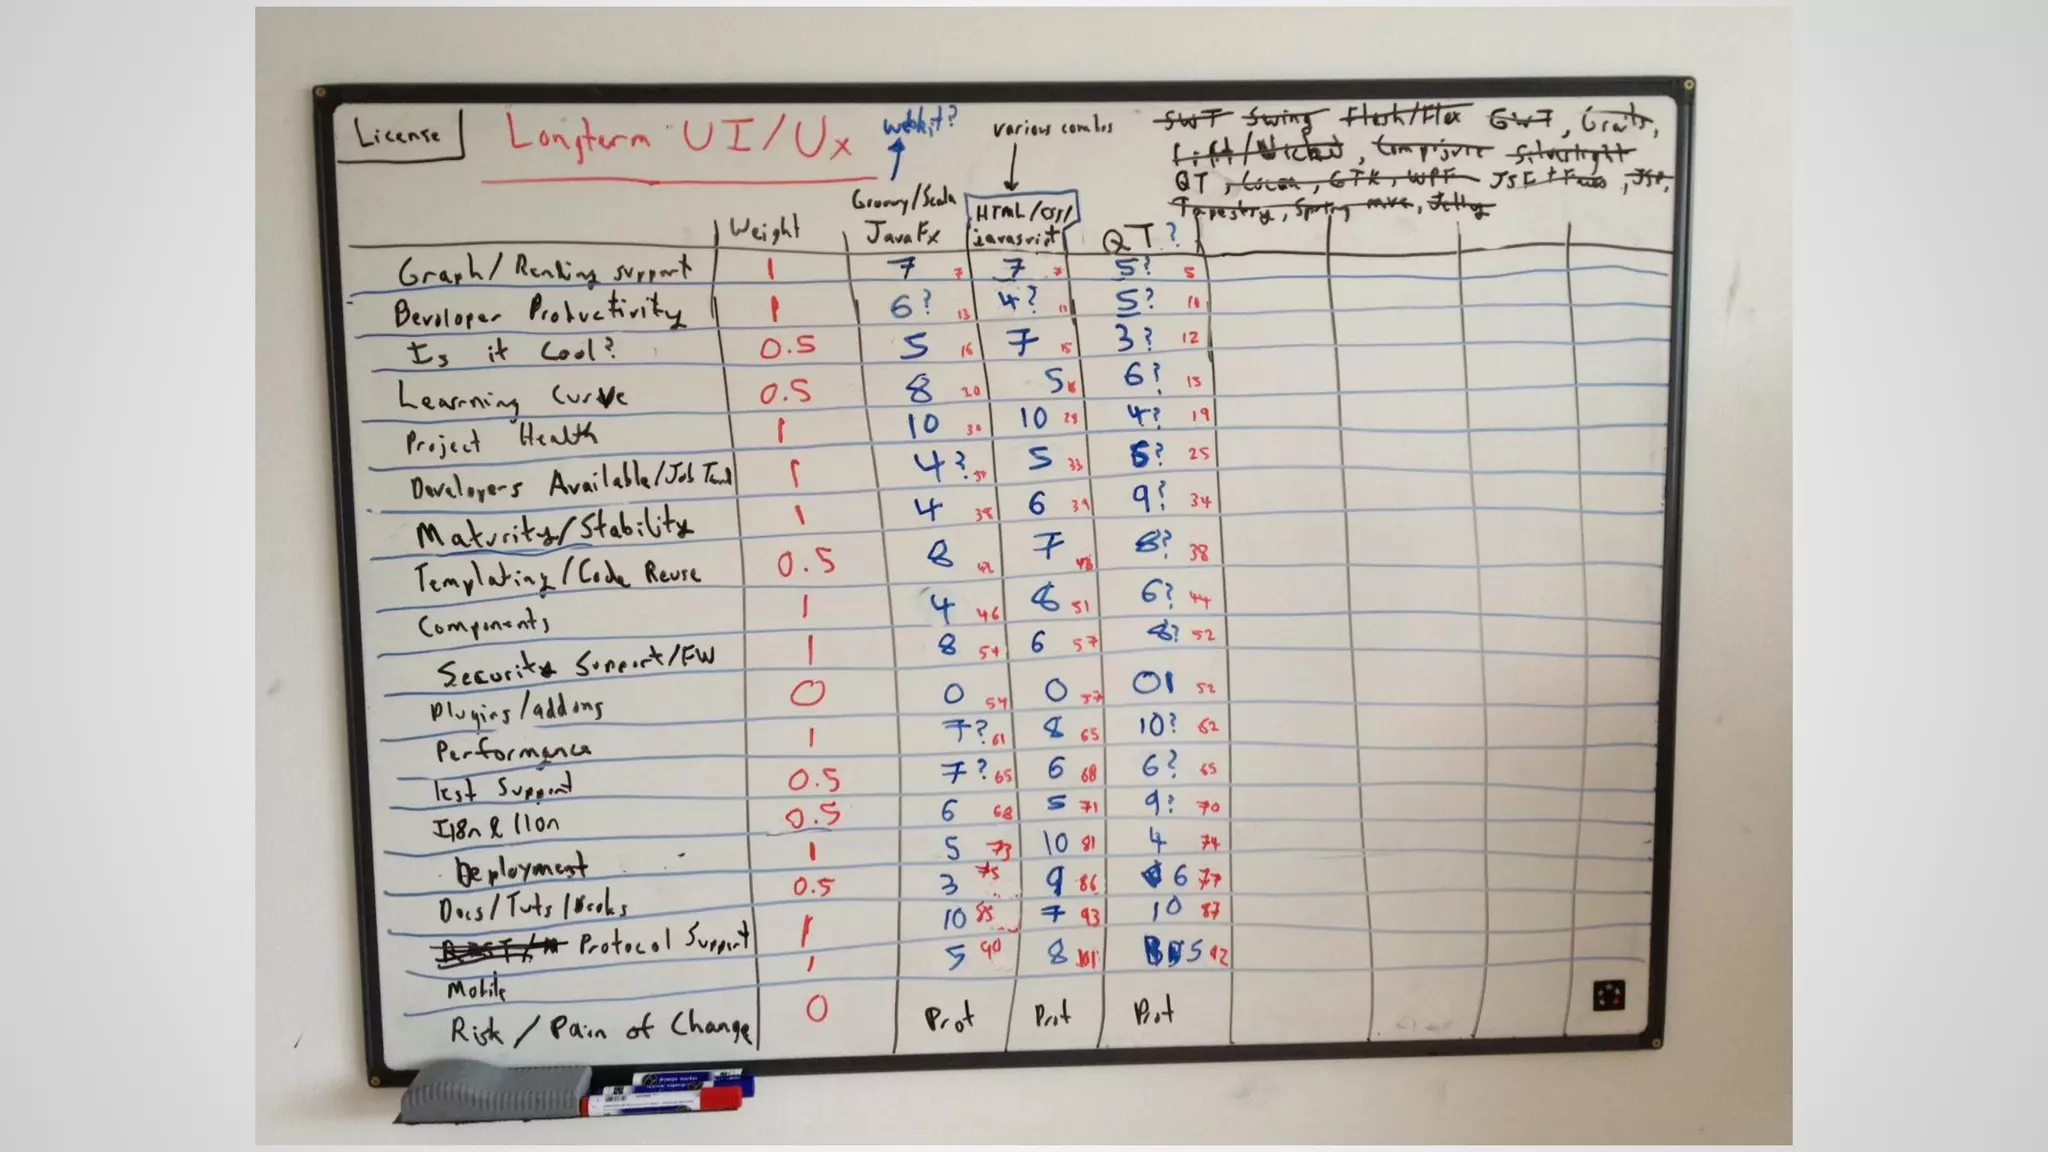 License
Longterm UI/Ux
webkit?
various combos
SWT Swing Flash/Flex GWT, Grails,
Lift/Wicket, Silverlight
QT, Cocoa, GTK, WPF JSF + Faces, JSP,
Tapestry, Spring mvc, Jelly
Weight Groovy/Scala JavaFx HTML/CSS/javascript QT?
Graph/Rending support 1 7 7 7 7 5? 5
Devoloper Productivity 1 6? 13 4? 11 5? 10
Is it Cool? 0.5 5 16 7 15 3? 12
Learning Curve 0.5 8 20 5 18 6? 15
Project Health 1 10 30 10 28 4? 19
Developers Available/Job Trend 1 4? 5 33 6? 25
Maturity/Stability 1 4 38 6 39 9? 34
Templating/Code Reuse 0.5 8 42 7 43 8? 38
Components 1 4 46 8 51 6? 44
Security Support/FW 1 8 54 6 57 8? 52
Plugins/addons 0 0 54 0 57 01 52
Performance 1 7? 61 8 65 10? 62
Test Support 0.5 7? 65 6 68 6? 65
I18n & l10n 0.5 6 68 5 71 9? 70
Deployment 1 5 73 10 81 4 74
Docs/Tuts/Books 0.5 3 75 9 86 6 77
Protocol Support 1 10 85 7 93 10 87
Mobile 1 5 90 8 101 5 92
Risk/Pain of Change 0 Prot Prot Prot